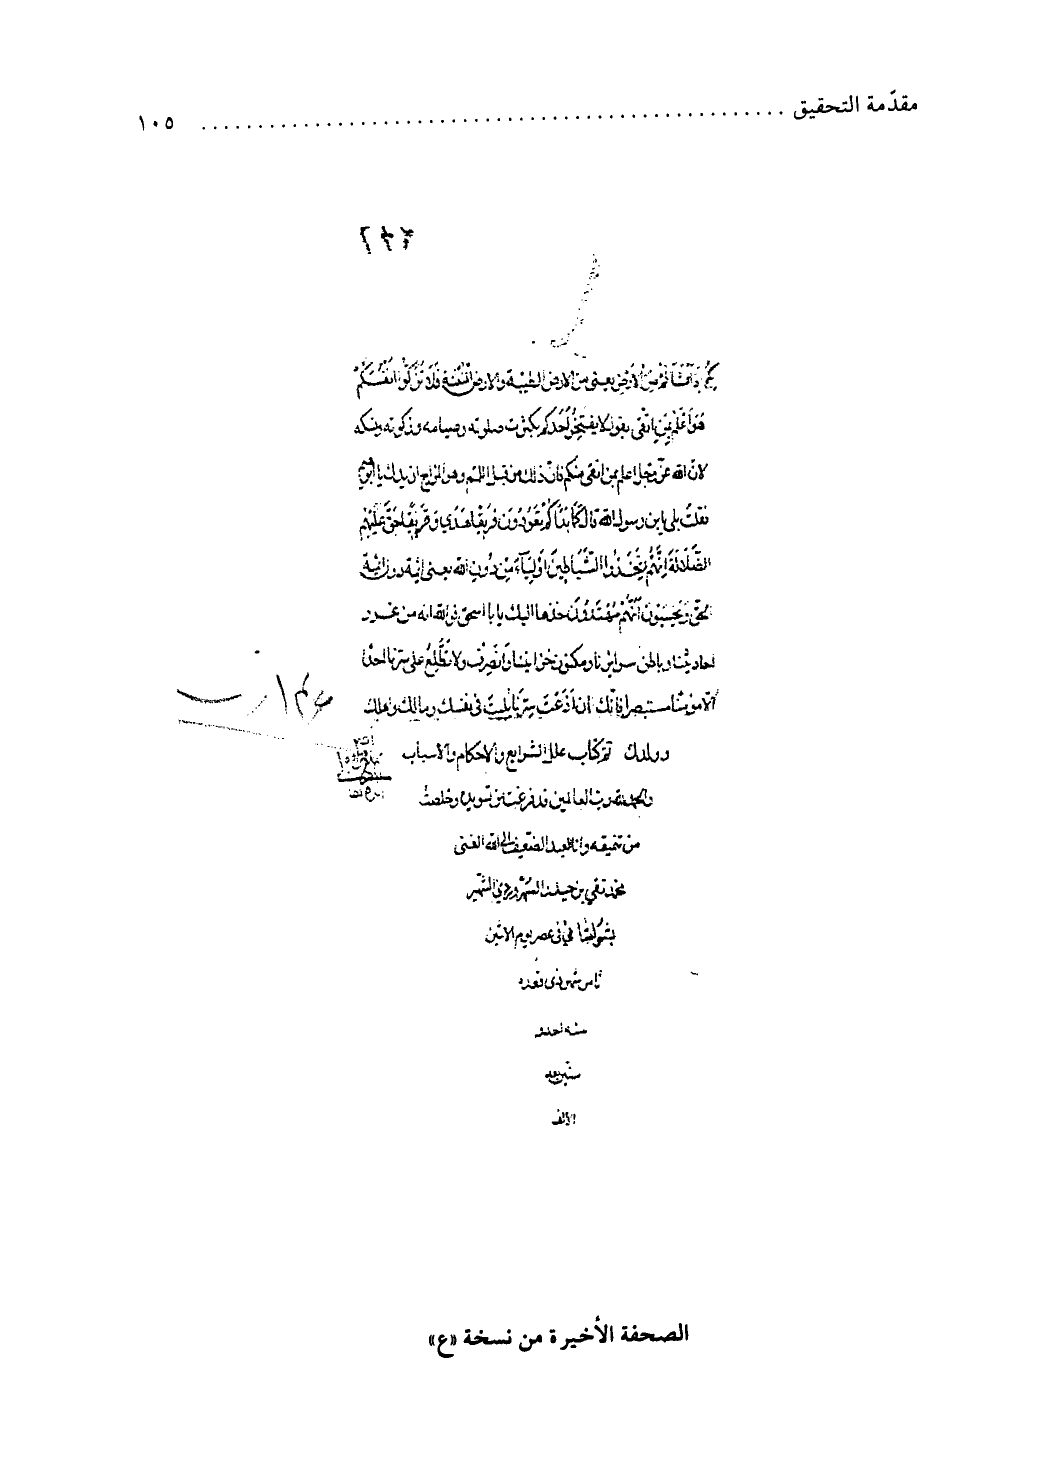 مقدّمة التحقيق ........................................ ١٠٥
بكم إذ أنشأكم من الأرض يعني من الارض الطيبة والارض المنتنة فلا تزكوا انفسكم
هو أعلم بمن اتقى يقول لا يفتخر احدكم بكثرت صلوته وصيامه وزكوته ونسكه
لان الله عزّ وجل اعلم بمن اتقى منكم فان ذلك من قبل اللمم وهو المزاج ازيدك يا ابرهيم
فقلت بلى يابن رسول الله قال كما بدأكم تعودون فريقا هدى وفريقا حق عليهم
الضلالة إنهم اتخذوا الشياطين أولياء من دون الله يعني ائمة دون ائمة
الحق ويحسبون أنهم مهتدون خذها اليك يا با اسحق فوالله انه من غرر
احاديثنا وباطن سرايرنا ومكنون خزايننا وانصرف ولا تطلع على سرنا احدا
الا مؤمنا مستبصرا فانك ان اذعت سرنا بليت في نفسك ومالك واهلك
وولدك تم كتاب علل الشرايع والاحكام والاسباب
والحمد لله رب العالمين قد فرغت من تسويده وخلصت
من تنميقه وانا العبد الضعيف الى الله الغنى
محمد تقي بن السهروردي الشهير
في عصر يوم الاثنين
ثامن شهر ذى قعده
سنه احدى
ستين بعد
الالف
الصحفة الأخيرة من نسخة «ع»